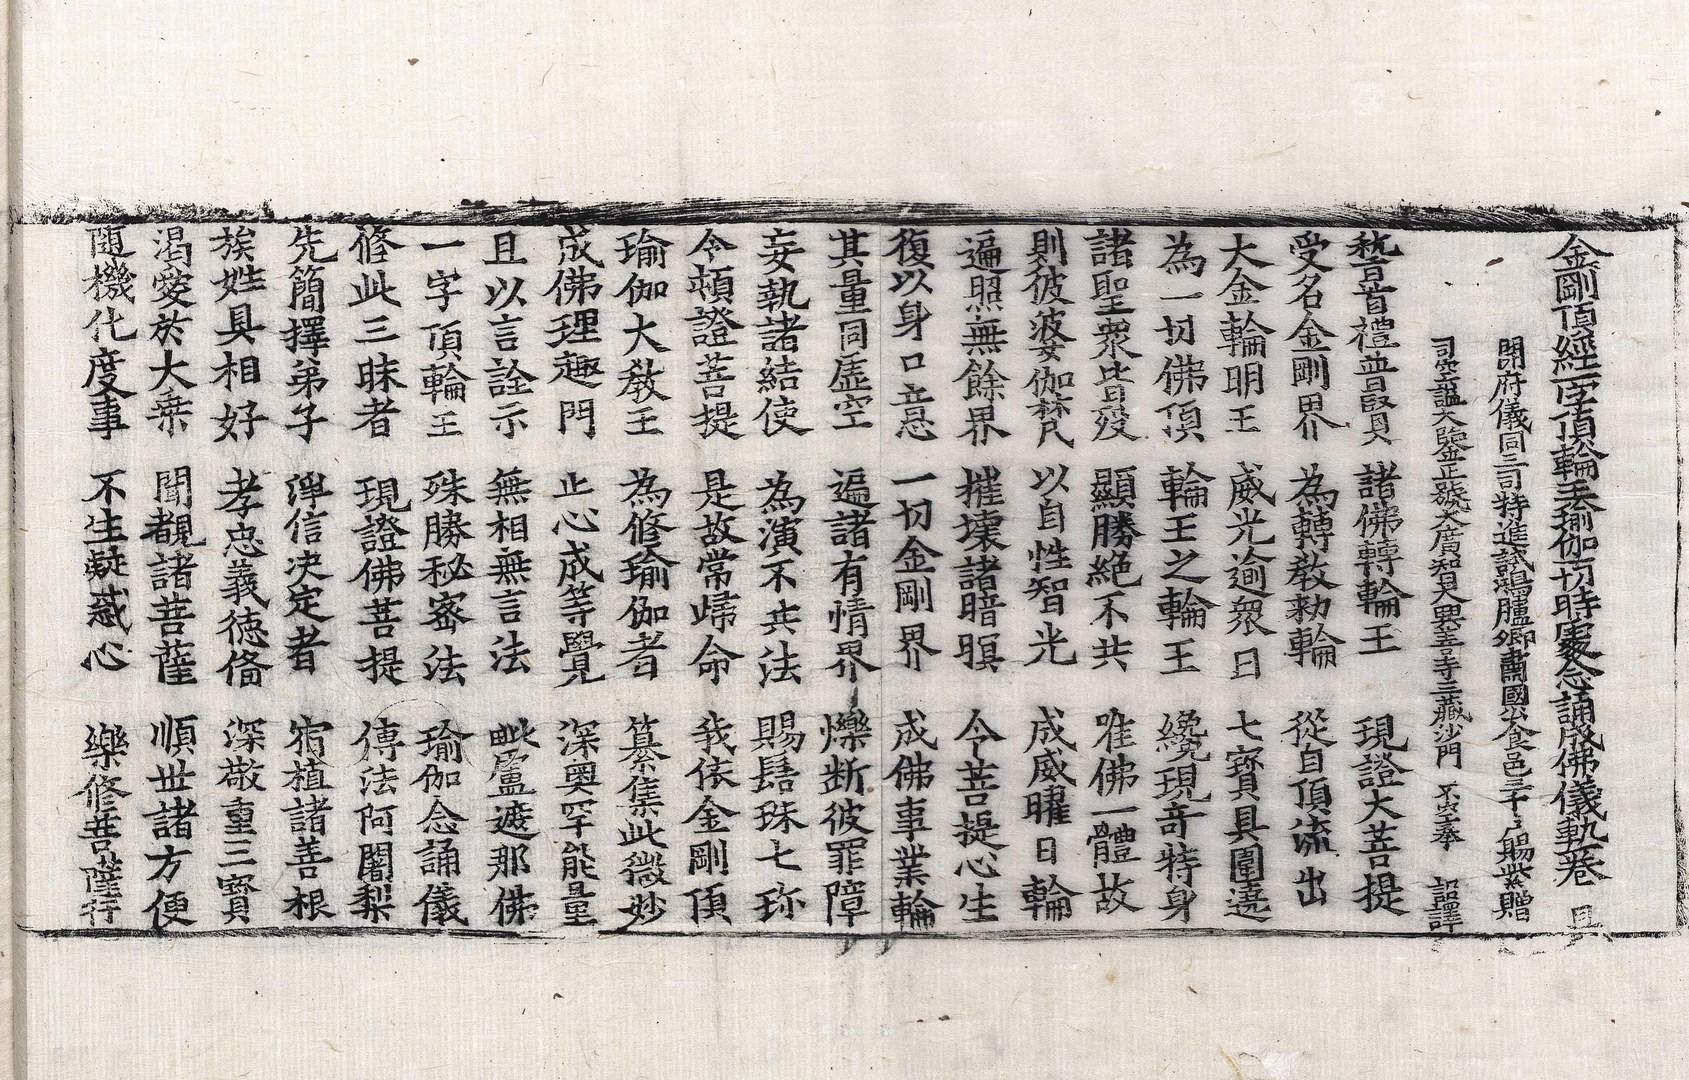 金剛頂經一字頂輪王瑜伽一切時處念誦成佛儀軌一卷 且
開府儀同三司特進試鴻臚卿肅國公食邑三千戶賜紫贈
司空諡大鑒正號大廣智大興善寺三藏沙門 不空奉 詔譯
稽首禮普賢 諸佛轉輪王 現證大菩提
受名金剛界 為轉教勅輪 從自頂流出
大金輪明王 威光逾衆日 七寶具圍遶
為一切佛頂 輪王之輪王 纔現奇特身
諸聖衆皆歿 顯勝絕不共 唯佛一體故
則彼婆伽梵 以自性智光 成威曜日輪
遍照無餘界 摧壞諸暗暝 今菩提心生
復以身口意 一切金剛界 成佛事業輪
其量同虛空 遍諸有情界 爍斷彼罪障
妄執諸結使 為演不共法 賜髻珠七珎
令頓證菩提 是故常歸命 我依金剛頂
瑜伽大教王 為修瑜伽者 纂集此微妙
成佛理趣門 止心成等覺 深奧罕能量
且以言詮示 無相無言法 毗盧遮那佛
一字頂輪王 殊勝秘密法 瑜伽念誦儀
修此三昧者 現證佛菩提 傳法阿闍梨
先簡擇弟子 淨信決定者 宿植諸善根
族姓具相好 孝忠義德俻 深敬重三寶
渴愛於大乘 聞觀諸菩薩 順世諸方便
随機化度事 不生疑惑心 樂修菩薩行